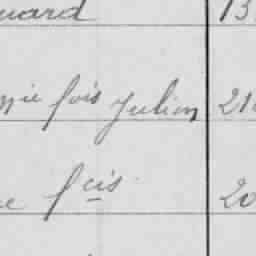 uard 13
nie fois Julien 21
e fcis 20